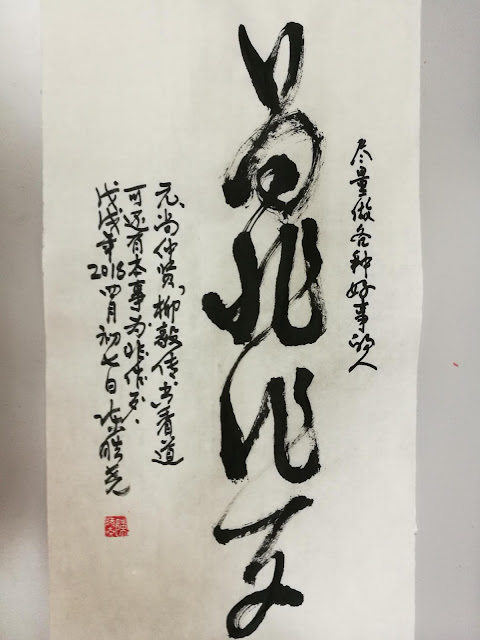 尽量做各种好事的人
为非作歹
元、尚仲贤，柳毅传书看道
可还有本事为非作歹、
戊戌年2018四月初七日